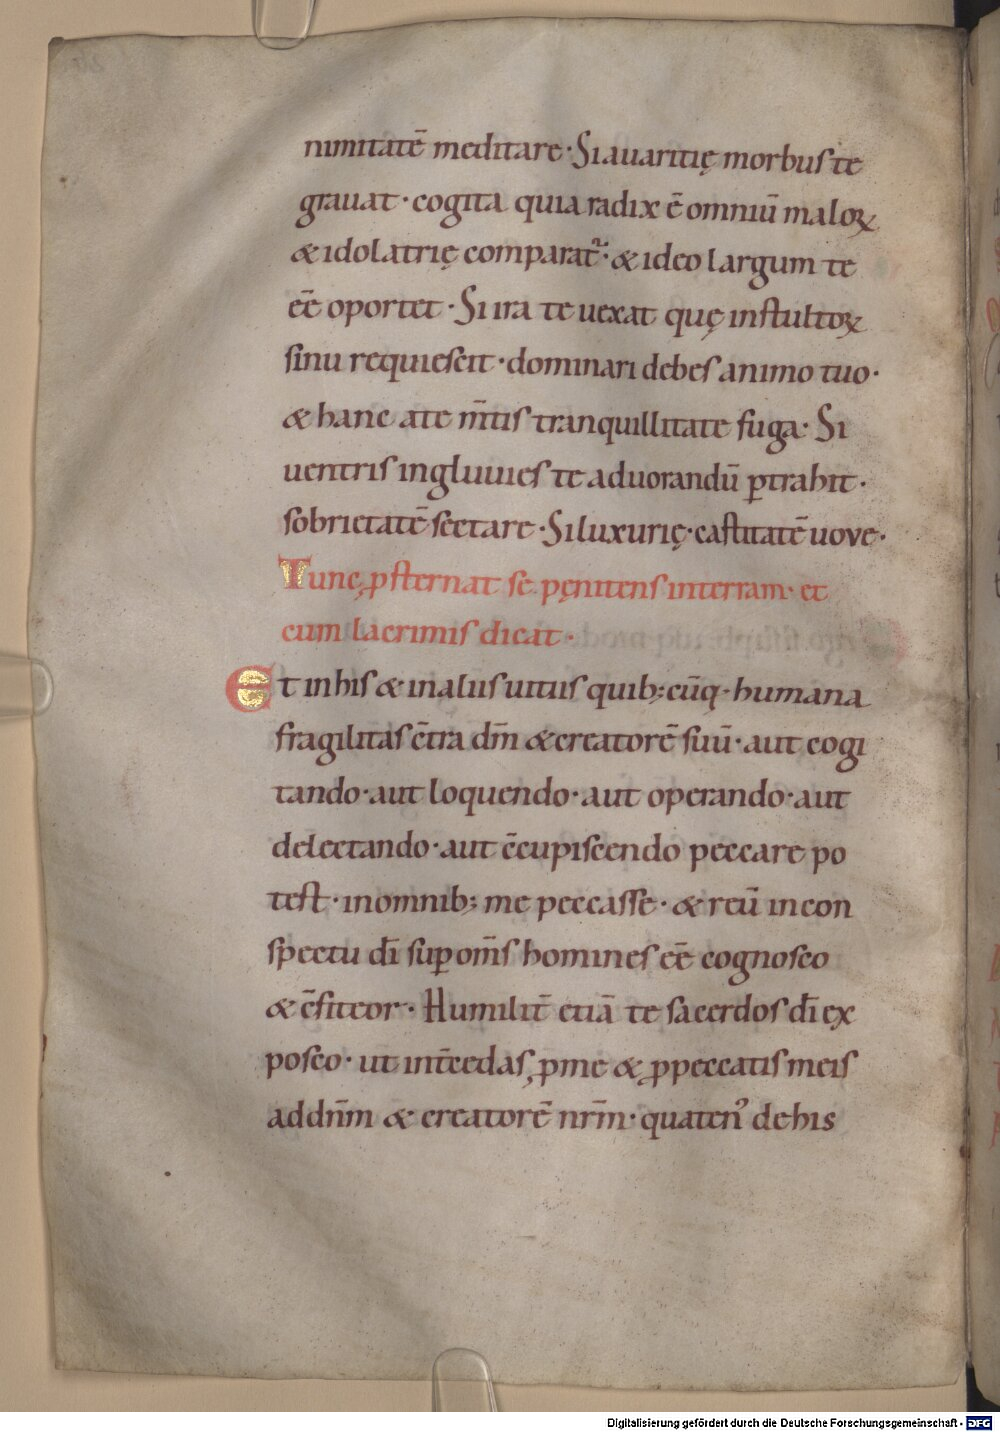 nimitatē meditare · Si auaritię morbus te
grauat · cogita quia radix ē omniū maloꝝ
& idolatrię comparat᷑ · & ideo largum te
eē oportet · Si ira te uexat quę in stultoꝝ
sinu requiescit · dominari debes animo tuo ·
& hanc a te m̄tis tranquillitate fuga · Si
uentris ingluuies te ad uorandū ꝑtrahit ·
sobrietatē sectare · Si luxurię · castitatē uove ·
Tunc ꝓsternat se pęnitens in terram · et
cum lacrimis dicat ·
Et in his & in aliis uitiis quib; cūq · humana
fragilitas c̄tra dm̄ & creatorē suū · aut cogi
tando · aut loquendo · aut operando · aut
delectando · aut c̄cupiscendo peccare po
test · in omnib; me peccasse · & reū in con
spectu dī suꝑ om̄s homines eē cognosco
& c̄fiteor · Humilit̄ etiā te sacerdos dī ex
posco · ut int̄cedas ꝓ me & ꝓ peccatis meis
ad dn̄m & creatorē nr̄m · quatenꝰ de his
Digitalisierung gefördert durch die Deutsche Forschungsgemeinschaft - DFG